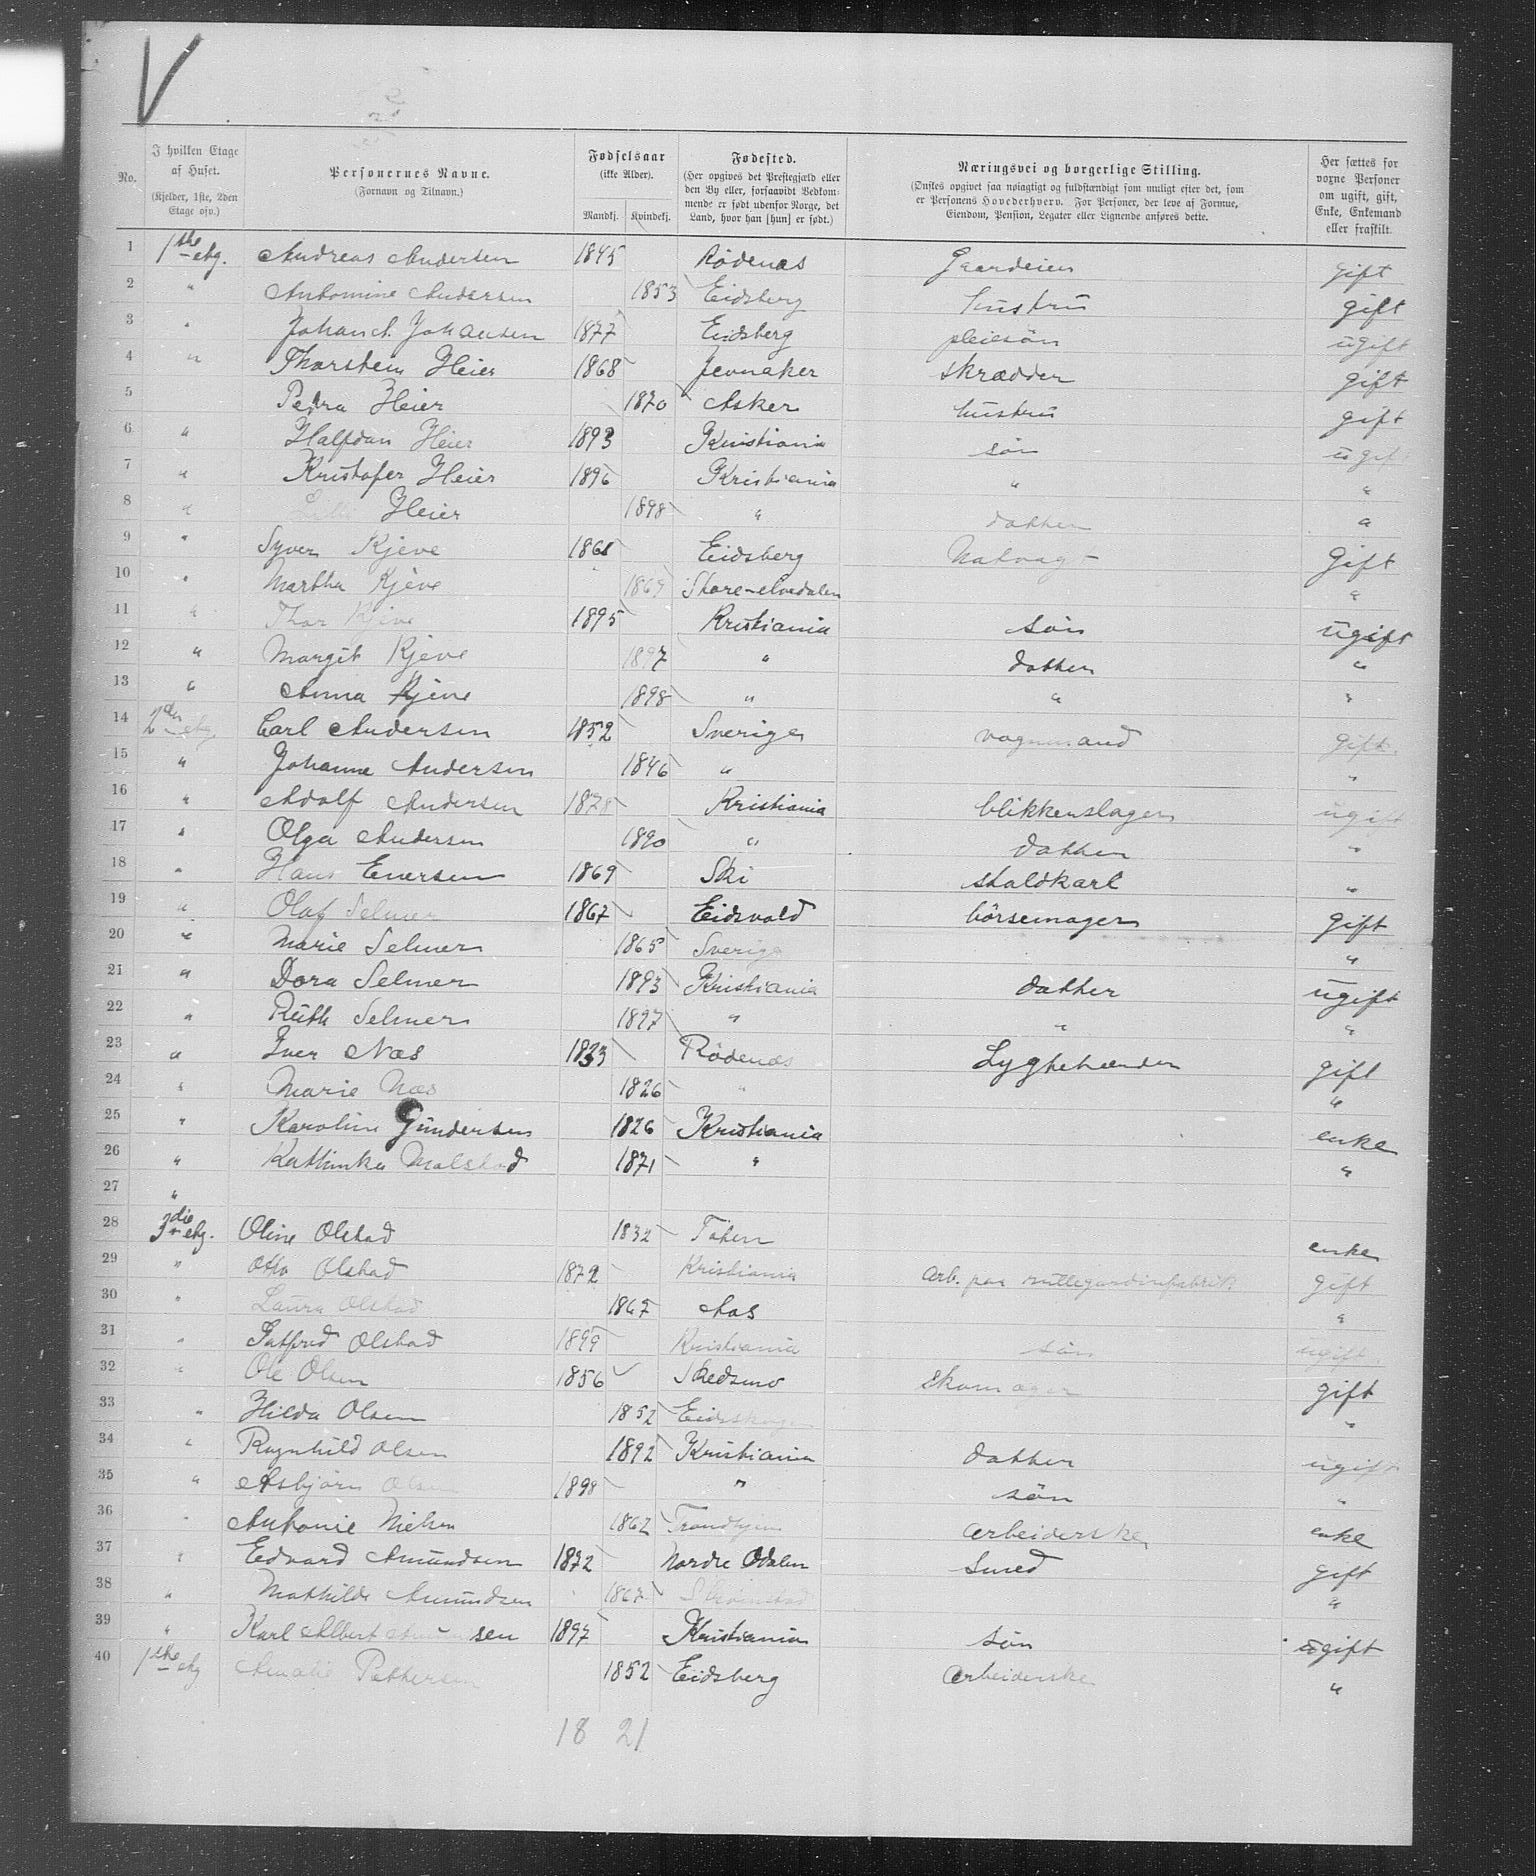 V
No.
I hvilken Etage af Huset.
(Kjelder, 1ste, 2den Etage osv.)
Personernes Navne.
(Fornavn og Tilnavn.)
Fødselsaar
(ikke Alder).
Mandkj. Kvindekj.
Fødested.
(Her opgives det Prestegjæld eller den By eller, forsaavidt Vedkommende er født udenfor Norge, det Land, hvor han [hun] er født.)
Næringsvei og borgerlige Stilling.
(Ønskes opgivet saa nøiagtigt og fuldstændigt som muligt efter det, som er Personens Hovederhverv. For Personer, der leve af Formue, Eiendom, Pension, Legater eller Lignende anføres dette.
Her sættes for voxne Personer om ugift, gift, Enke, Enkemand eller fraskilt.
1 1ste etg. Andreas Andersen 1845 Rödenæs Gaardeier gift
2 " Antomine Andersen 1853 Eidsberg hustru gift
3 " Johan Johansen 1877 Eidsberg pleiesön ugift
4 " Thorstein Heier 1868 Jevnaker skrædder gift
5 Petra Heier 1870 Asker hustru gift
6 " Halfdan Heier 1893 Kristiania sön ugift
7 " Kristofer Heier 1896 Kristiania " "
8 " Lilli Heier 1898 " datter "
9 " Syver Kjeve 1861 Eidsberg Natvagt Gift
10 " Martha Kjeve 1869 Store-elvedalen "
11 " Thor Kjeve 1895 Kristiania sön ugift
12 " Margit Kjeve 1897 " datter "
13 " Anna Kjeve 1898 " " "
14 2den etg. Carl Andersen 1852 Sverige vognmand gift
15 " Johanne Andersen 1846 " "
16 " Adolf Andersen 1878 Kristiania blikkenslager ugift
17 " Olga Andersen 1890 " datter "
18 " Hans Enersen 1869 Ski staldkarl "
19 " Olaf Selmer 1867 Eidsvold börsemager gift
20 " Marie Selmer 1865 Sverige "
21 " Dora Selmer 1893 Kristiania datter ugift
22 " Ruth Selmer 1897 " " "
23 " Iver Næs 1833 Rödenæs Lygtetænder gift
24 " Marie Næs 1826 " "
25 " Karoline Gundersen 1826 Kristiania enke
26 " Kathinka Malstad 1871 " "
27 "
28 3die etg. Oline Olstad 1832 Toten enke
29 " Otto Olstad 1872 Kristiania Arb. paa rullegardinfabrik gift
30 " Laura Olstad 1867 Aas "
31 " Olstad 1899 Kristiania sön ugift
32 " Ole Olsen 1856 Skedsmo Skomager gift
33 " Hilda Olsen 1852 Eidskogen "
34 " Ragnhild Olsen 1892 Kristiania datter ugift
35 " Asbjörn Olsen 1898 " sön "
36 " Antonie Nielsen 1862 Trondhjem arbeiderske enke
37 " Edvard Amundsen 1872 Nordre Odalen smed gift
38 " Mathilde Amundsen 1867 Strömstad "
39 " Karl Albert Amundsen 1897 Kristiania sön ugift
40 1ste etg Amalie Pettersen 1852 Eidsberg Arbeiderske "
18 21